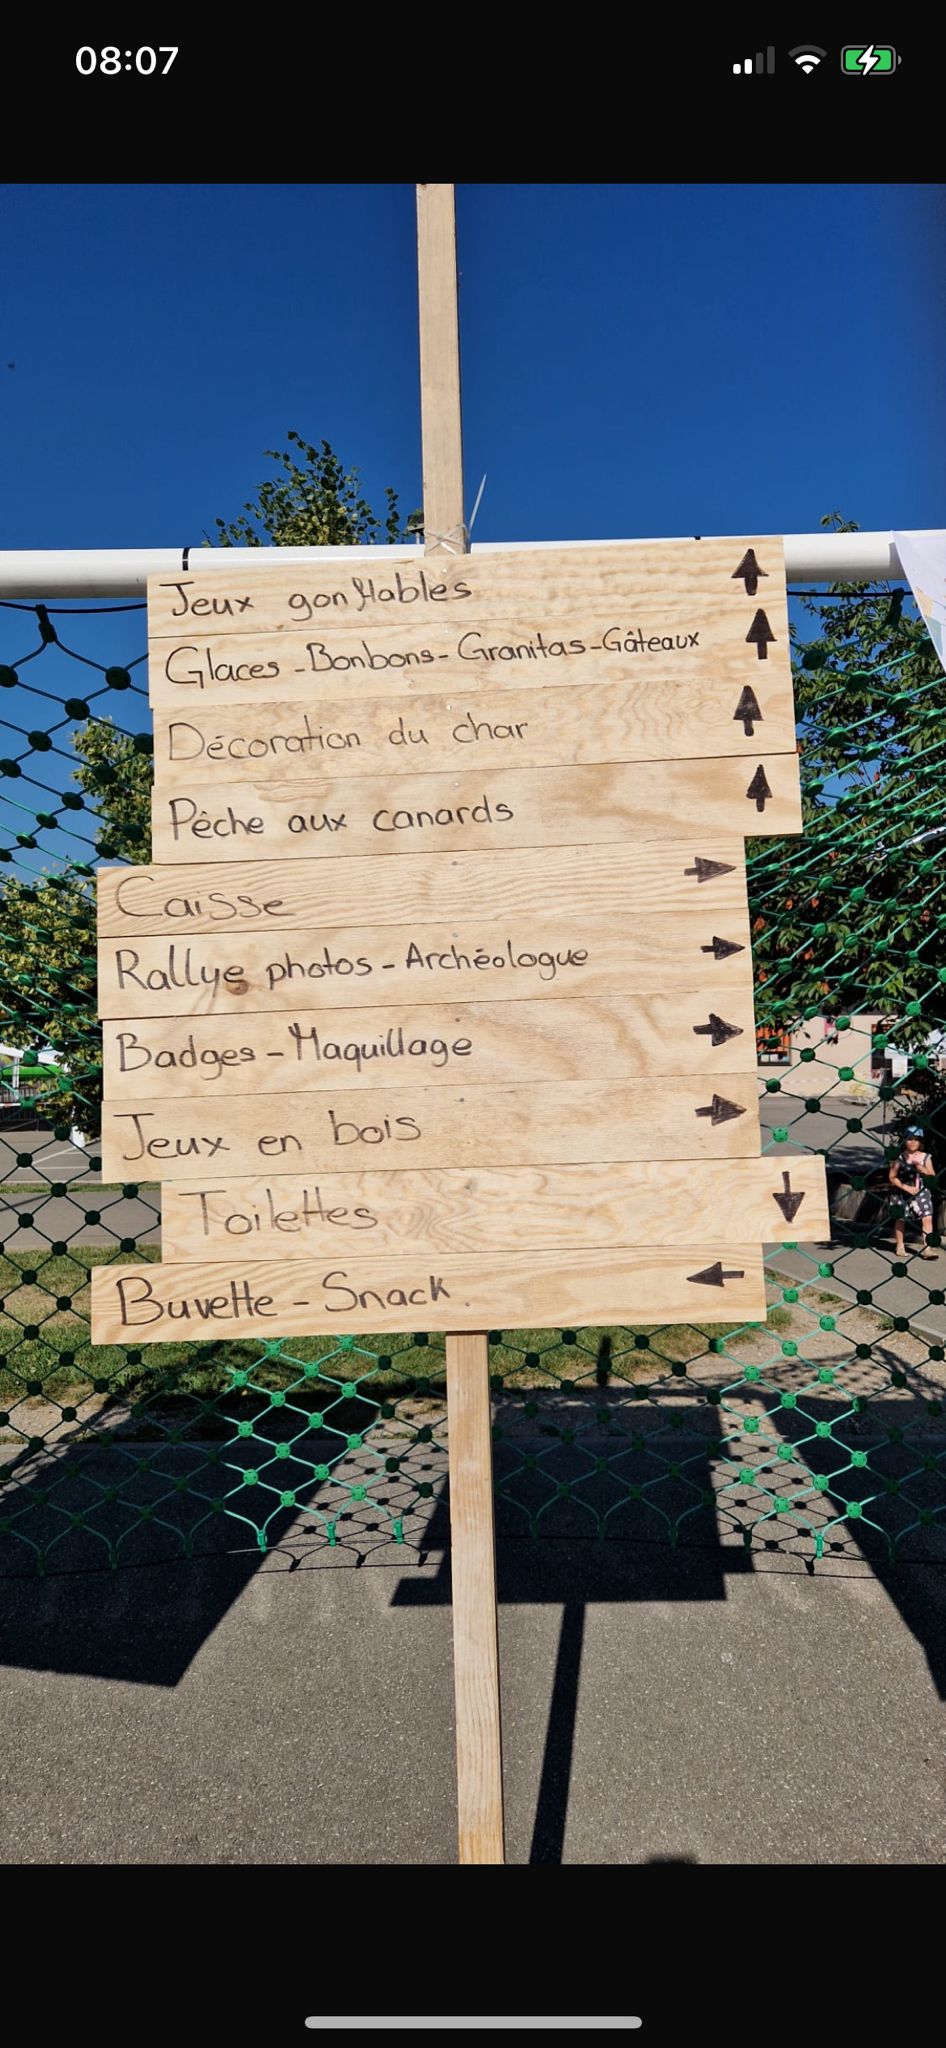 08:07
Jeux gonflables
Glaces - Bonbons - Granitas - Gâteaux
Décoration du char
Pêche aux canards
Caisse
Rallye photos - Archéologue
Badges - Maquillage
Jeux en bois
Toilettes
Buvette - Snack.